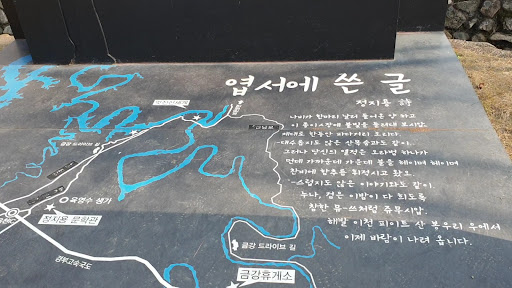 엽서에 쓴 글
정지용 詩
나비가 한마리 날러 들어온 양 하고
이 종이ㅅ장에 불빛을 돌려대 보시압.
제대로 한동안 파다거리 오리다.
-대수롭지도 않은 산목숨과도 같이.
그러나 당신의 열적은 오라범 하나가
먼데 가까운데 가운데 불을 헤이며 헤이며
찬비에 함추름 휘적시고 왔오.
-스럽지도 않은 이야기와도 같이.
누나, 검은 이밤이 다 희도록
참한 뮤-쓰처럼 쥬무시압.
해발 이천 피이트 산 봉우리 우에서
이제 바람이 나려 옵니다.
금강 드라이브
육영수 생가
정지용 문학관
금강 드라이브 길
금강휴게소
경부고속국도